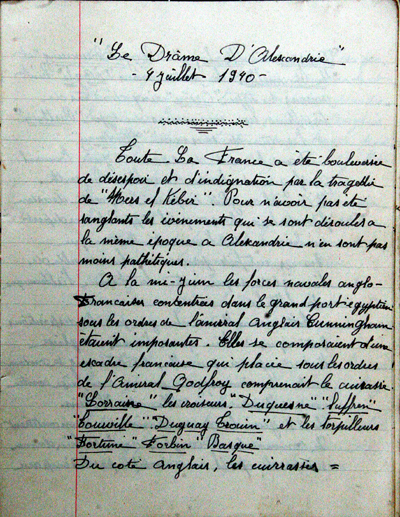 "Le Drâme D'Alexandrie"
- 4 juillet 1940 -
Toute La France a été bouleversée
de désespoir et d'indignation par la tragédie
de "Mers el Kebir". Pour n'avoir pas été
sanglants les évènements qui se sont déroulés a
la même époque a Alexandrie n'en sont pas
moins pathétiques.
A la mi-juin les forces navales anglo-
françaises concentrées dans le grand port égyptien
sous les ordres de l'amiral Anglais Cunningham
étaient imposantes. Elles se composaient d'une
escadre française qui placée sous les ordres
de l'Amiral Godfroy comprenait le cuirassé
"Lorraine" les croiseurs "Duquesne" "Suffren"
"Tourville" "Duguay Trouin" et les torpilleurs
"Fortuné" "Forbin" "Basque"
Du coté anglais, les cuirrassés =